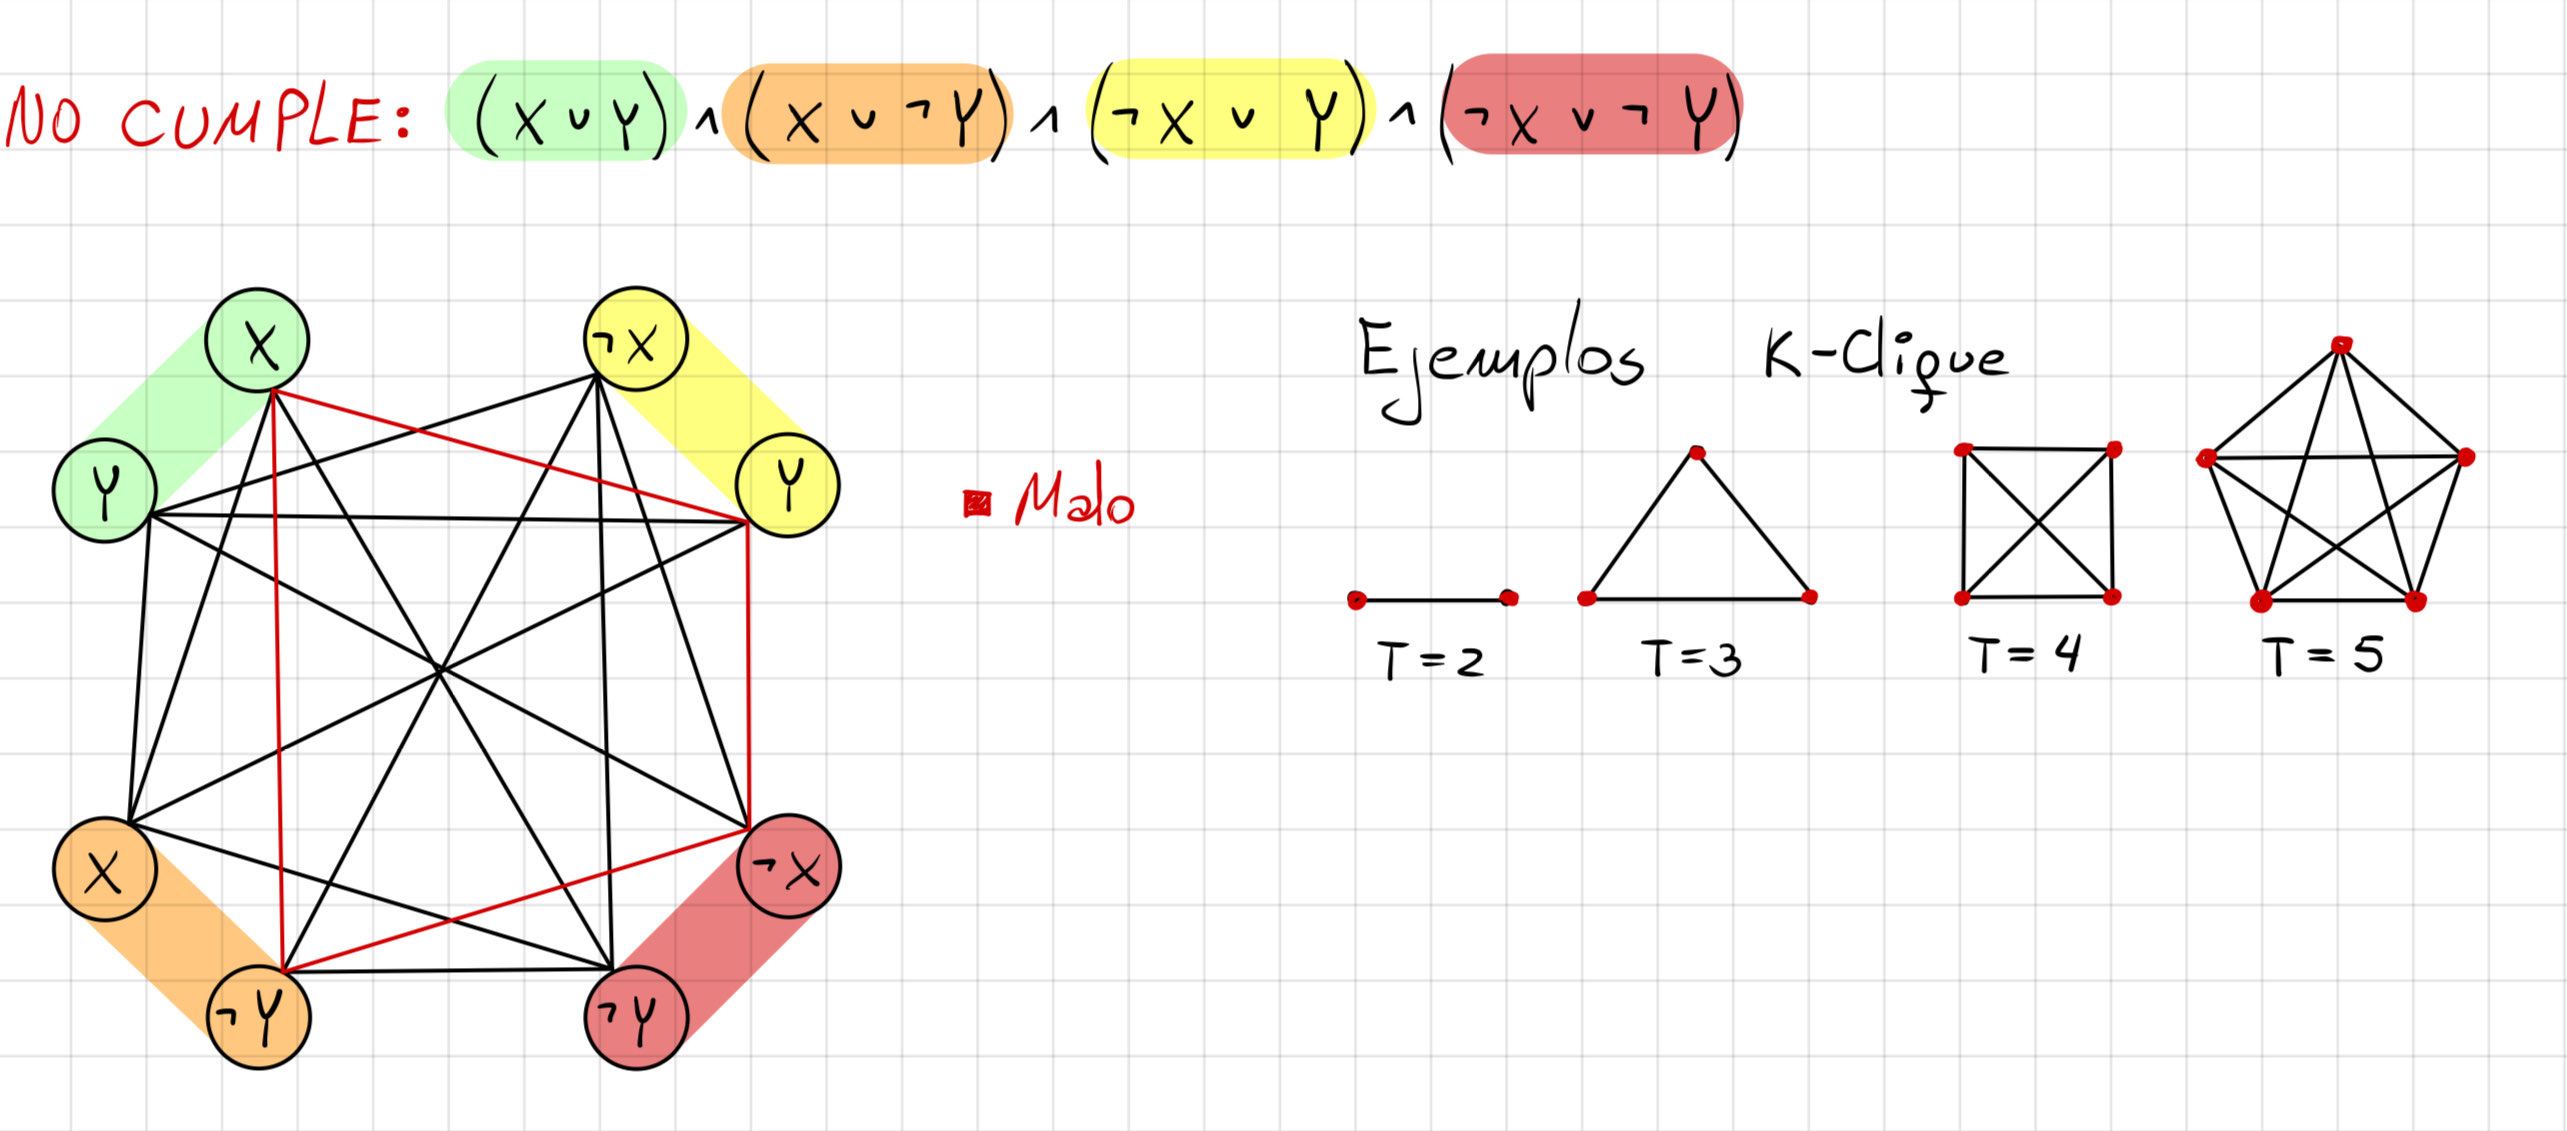 NO CUMPLE: (X ∨ Y) ∧ (X ∨ ¬Y) ∧ (¬X ∨ Y) ∧ (¬X ∨ ¬Y)
X
¬X
Y
Y
X
¬X
¬Y
¬Y
Malo
Ejemplos K-Clique
T=2
T=3
T=4
T=5